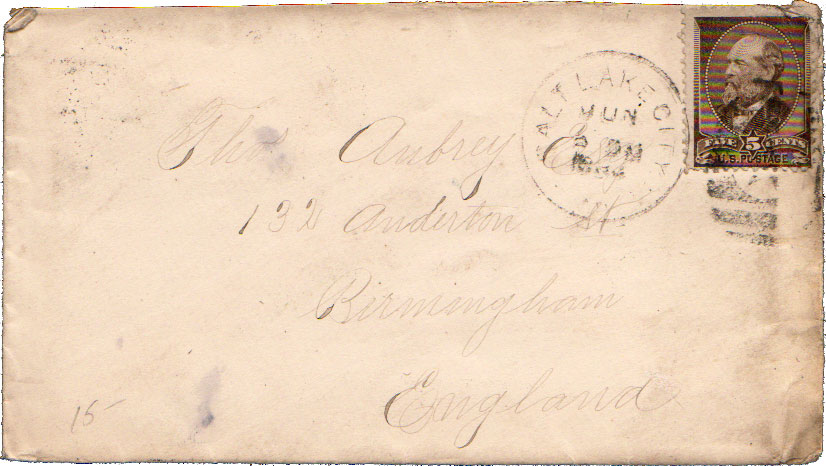 Thos Aubrey Esq
132 Anderton St
Birmingham
England
15
SALT LAKE CITY
JUN
PM
FIVE 5 CENTS
U.S. POSTAGE